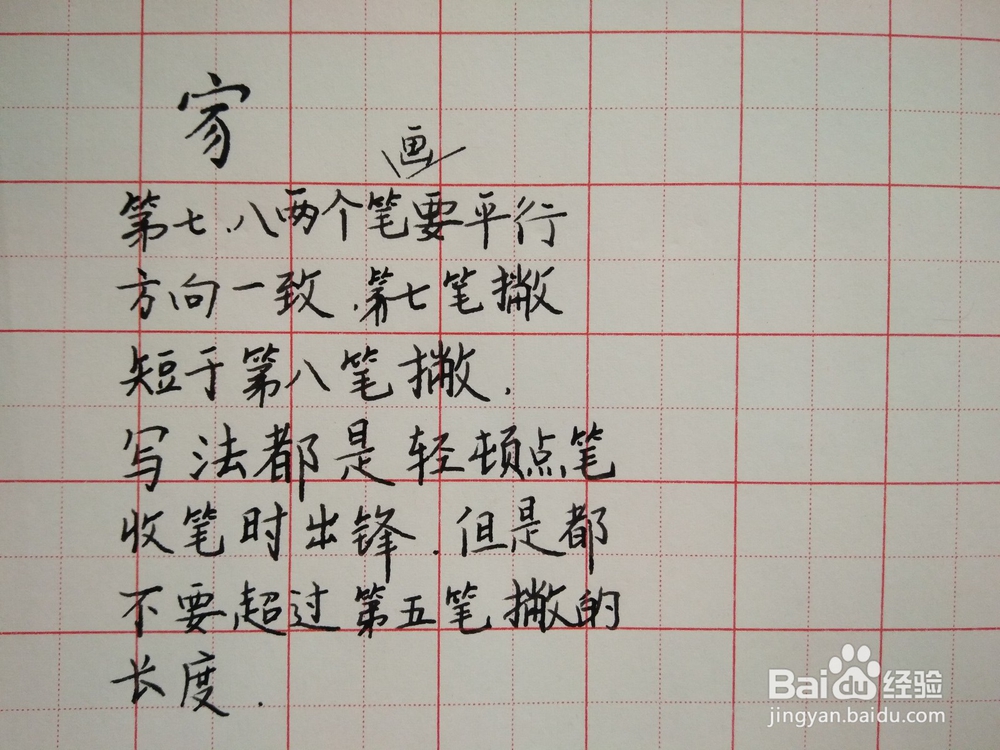 画
第七、八两个笔要平行
方向一致、第七笔撇
短于第八笔撇.
写法都是轻顿点笔
收笔时出锋.但是都
不要超过第五笔撇的
长度.
Baidu经验
jingyan.baidu.com